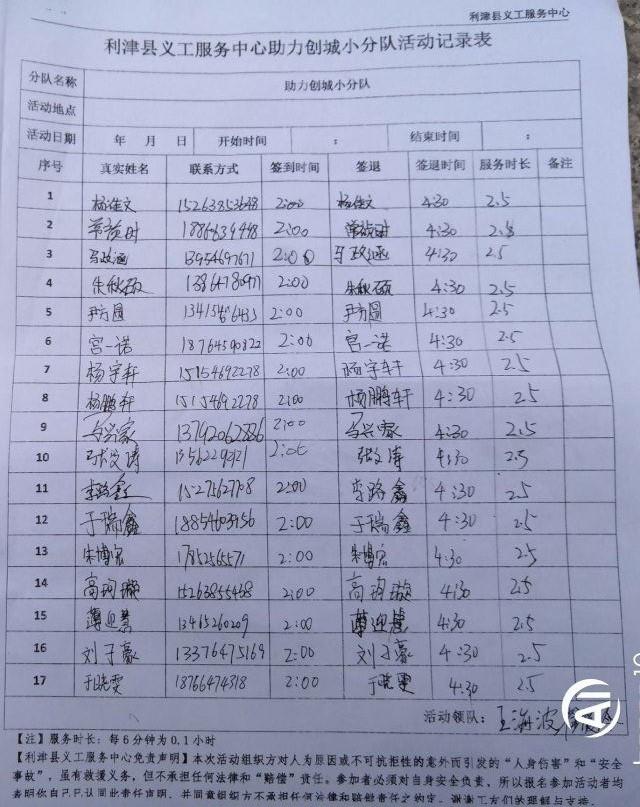 利津县义工服务中心
利津县义工服务中心助力创城小分队活动记录表
分队名称 助力创城小分队
活动地点
活动日期 年 月 日 开始时间 : 结束时间 :
序号 真实姓名 联系方式 签到时间 签退 签退时间 服务时长 备注
1 杨佳文 2:00 杨佳文 4:30 2.5
2 2:00 4:30 2.5
3 马政涵 2:00 马政涵 4:30 2.5
4 朱秋硕 2:00 朱秋硕 4:30 2.5
5 尹方圆 2:00 尹方圆 4:30 2.5
6 宫一诺 18764590822 2:00 宫一诺 4:30 2.5
7 杨宇轩 15154692278 2:00 杨宇轩 4:30 2.5
8 杨鹏轩 15154692278 2:00 杨鹏轩 4:30 2.5
9 马兴家 13792062886 2:00 马兴家 4:30 2.5
10 张文涛 2:00 张文涛 4:30 2.5
11 李路鑫 15275627708 2:00 李路鑫 4:30 2.5
12 于瑞鑫 2:00 于瑞鑫 4:30 2.5
13 朱博宏 2:00 朱博宏 4:30 2.5
14 高珂璇 2:00 高珂璇 4:30 2.5
15 薄迎慧 13465260209 2:00 薄迎慧 4:30 2.5
16 刘子豪 13376475169 2:00 刘子豪 4:30 2.5
17 于晓雯 18766474318 2:00 于晓雯 4:30 2.5
活动领队: 王海波
【注】服务时长:每6分钟为0.1小时
【利津县义工服务中心免责声明】本次活动组织方对人为原因或不可抗拒性的意外而引发的“人身伤害”和“安全
事故”,虽有救援义务,但不承担任何法律和“赔偿”责任。参加者必须对自身安全负责,所以报名参加活动者均
表明你自己已认同此责任声明,并同意组织方不承担任何法律和赔偿责任之约定。谢谢工友们的理解与支持。